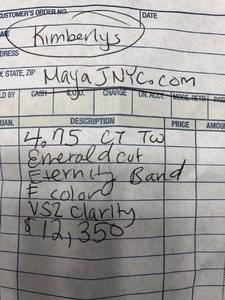 CUSTOMER'S ORDER NO.
DATE
NAME
Kimberlys
ADDRESS
CITY, STATE, ZIP
MayaJNYC.com
SOLD BY CASH C.O.D. CHARGE ON. ACCT. MDSE. RETD. PAID
QUAN. DESCRIPTION PRICE AMOUNT
4.75 CT TW
Emerald cut
Eternity Band
F color
VS2 Clarity
$12,350